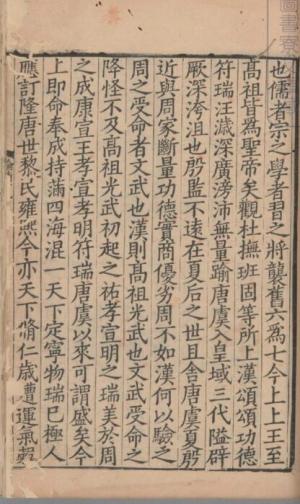 圖書
也儒者宗之學者習之將襲舊六為七今上上王至
髙祖皆為聖帝矣觀杜撫班固等所上漢頌頌功德
符瑞汪濊深廣滂沛無量踰唐虞入皇域三代隘辟
厥深洿沮也殷監不遠在夏后之世且舍唐虞夏殷
近與周家斷量功德實商優劣周不如漢何以驗之
周之受命者文武也漢則髙祖光武也文武受命之
降怪不及髙祖光武初起之祐孝宣明之瑞美於周
之成康宣王孝宣孝明符瑞唐虞以來可謂盛矣今
上即命奉成持滿四海混一天下定寧物瑞已極人
應訂隆唐世黎民雍熙今亦天下脩仁歲遭運氣穀